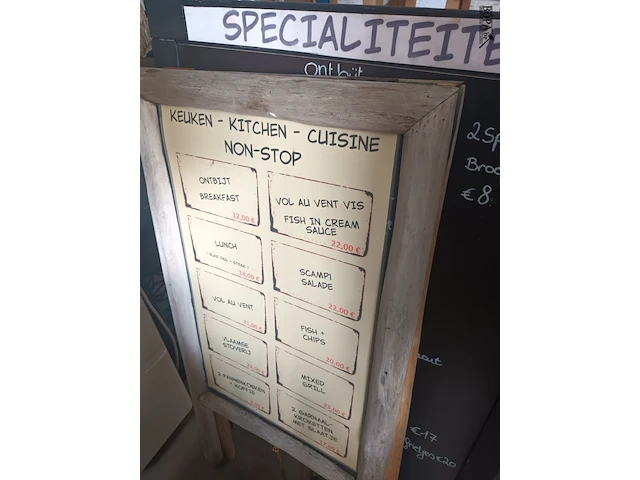 SPECIALITEITE
Ontbijt
KEUKEN - KITCHEN - CUISINE
NON-STOP
ONTBIJT
BREAKFAST
12,00 €
LUNCH
VOL AU VENT
VLAAMSE
STOVERIJ
2 PANNENKOEKEN
+ KOFFIE
VOL AU VENT VIS
FISH IN CREAM
SAUCE
22,00 €
SCAMPI
SALADE
22,00 €
FISH +
CHIPS
20,00 €
MIXED
GRILL
2 GARNAAL-
KROKETTEN
MET SLAATJE
17,00 €
2 Sp
Broo
€ 8
€17
€20